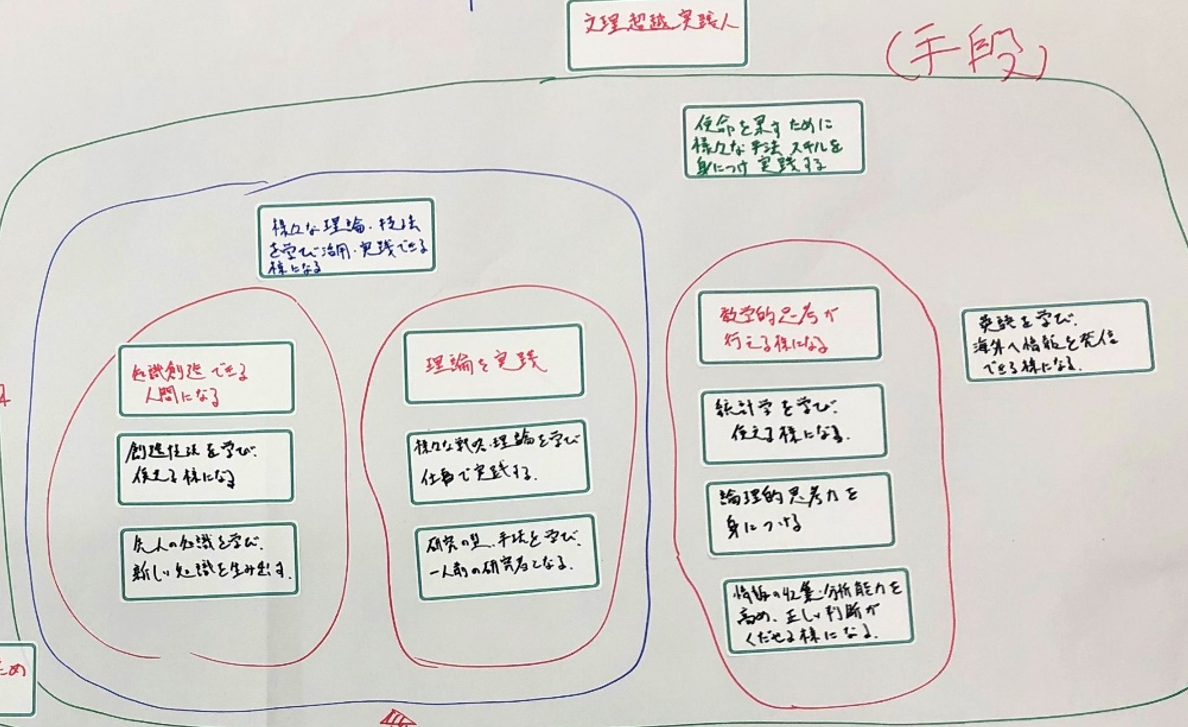 文理超越実践人
(手段)
使命を果すために
様々な手法 スキルを
身につけ 実践する
様々な理論・技法
を学び活用・実践できる
様になる
知識創造できる
人間になる
創造技法を学び、
使える様になる
先人の知識を学び、
新しい知識を生み出す。
理論を実践
様々な戦略、理論を学び
仕事で実践する。
研究の型、手法を学び、
一人前の研究者となる。
数学的思考が
行える様になる
統計学を学び、
使える様になる。
論理的思考力を
身につける
情報の収集・分析能力を
高め、正しい判断が
くだせる様になる。
英語を学び、
海外へ情報を発信
できる様になる。
ため